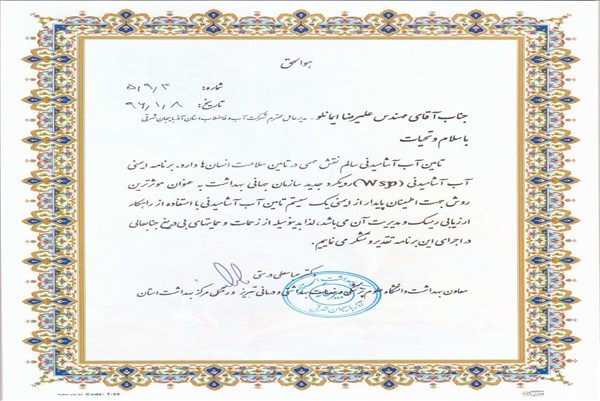 هوالحق
شماره: ۵۰۹/۳
تاریخ: ۹۶/۱/۸
جناب آقای مهندس علیرضا ایمانلو - مدیرعامل محترم شرکت آب و فاضلاب استان آذربایجان شرقی
با سلام و تحیات
تامین آب آشامیدنی سالم نقش مهمی در تامین سلامت انسان ها دارد. برنامه ایمنی
آب آشامیدنی (Wsp) رویکرد جدید سازمان جهانی بهداشت به عنوان موثرترین
روش جهت اطمینان پایدار از ایمنی یک سیستم تامین آب آشامیدنی با استفاده از راهکار
ارزیابی ریسک و مدیریت آن می باشد، لذا بدینوسیله از زحمات و حمایتهای بی دریغ جنابعالی
در اجرای این برنامه تقدیر و تشکر می نماییم.
دکتر عباسعلی درستی
معاون بهداشت دانشگاه علوم پزشکی و خدمات بهداشتی و درمانی تبریز و رئیس مرکز بهداشت استان
آذربایجان شرقی
Code: T-28